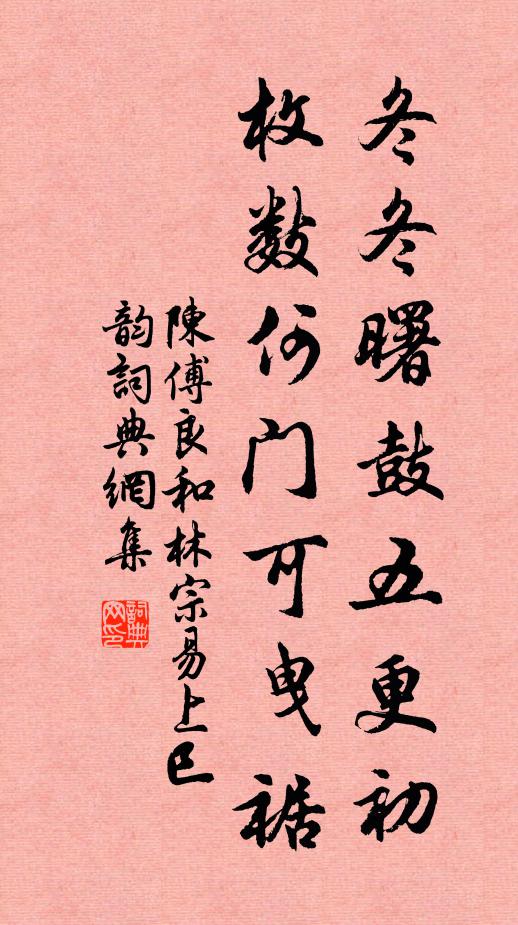 冬冬曙鼓五更初
枚数何门可曳裾
陳傅良和林宗易上巳
韵詞典網集
詞典网印